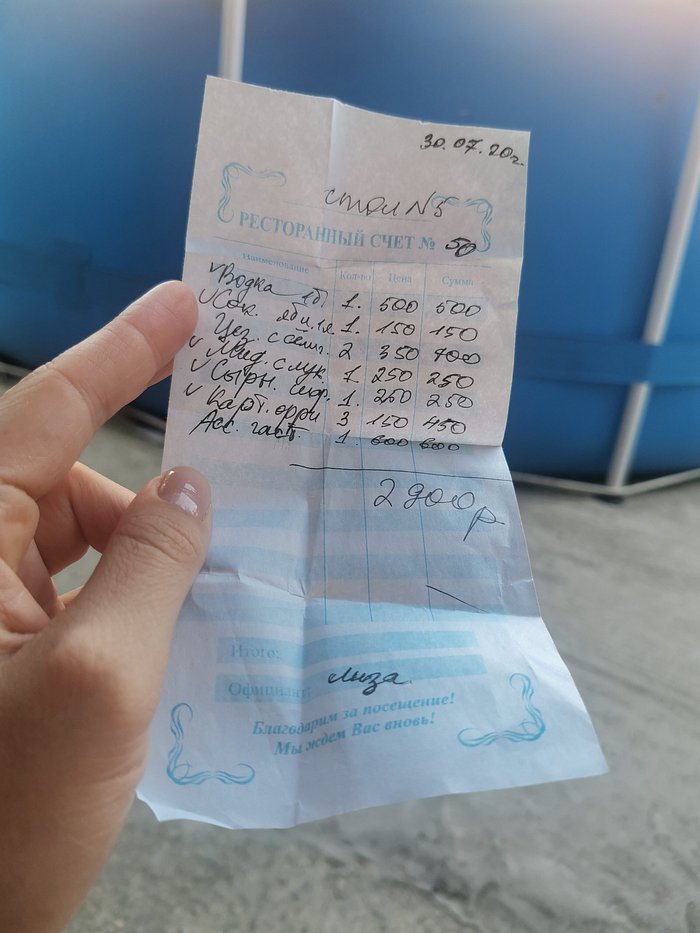 30.07.20г.
стол N5
РЕСТОРАННЫЙ СЧЕТ № 50
Наименование Кол-во Цена Сумма
✓Водка 1б. 1. 500 500
✓Сок. ябл. 1л 1. 150 150
Цез. с сёмг. 2 350 700
✓Мид. с лук. 1. 250 250
✓Сырн. шар. 1. 250 250
✓Карт. фри 3 150 450
Асс. гаст. 1. 600 600
2900р
Итого:
Официант: Лиза.
Благодарим за посещение!
Мы ждем Вас вновь!